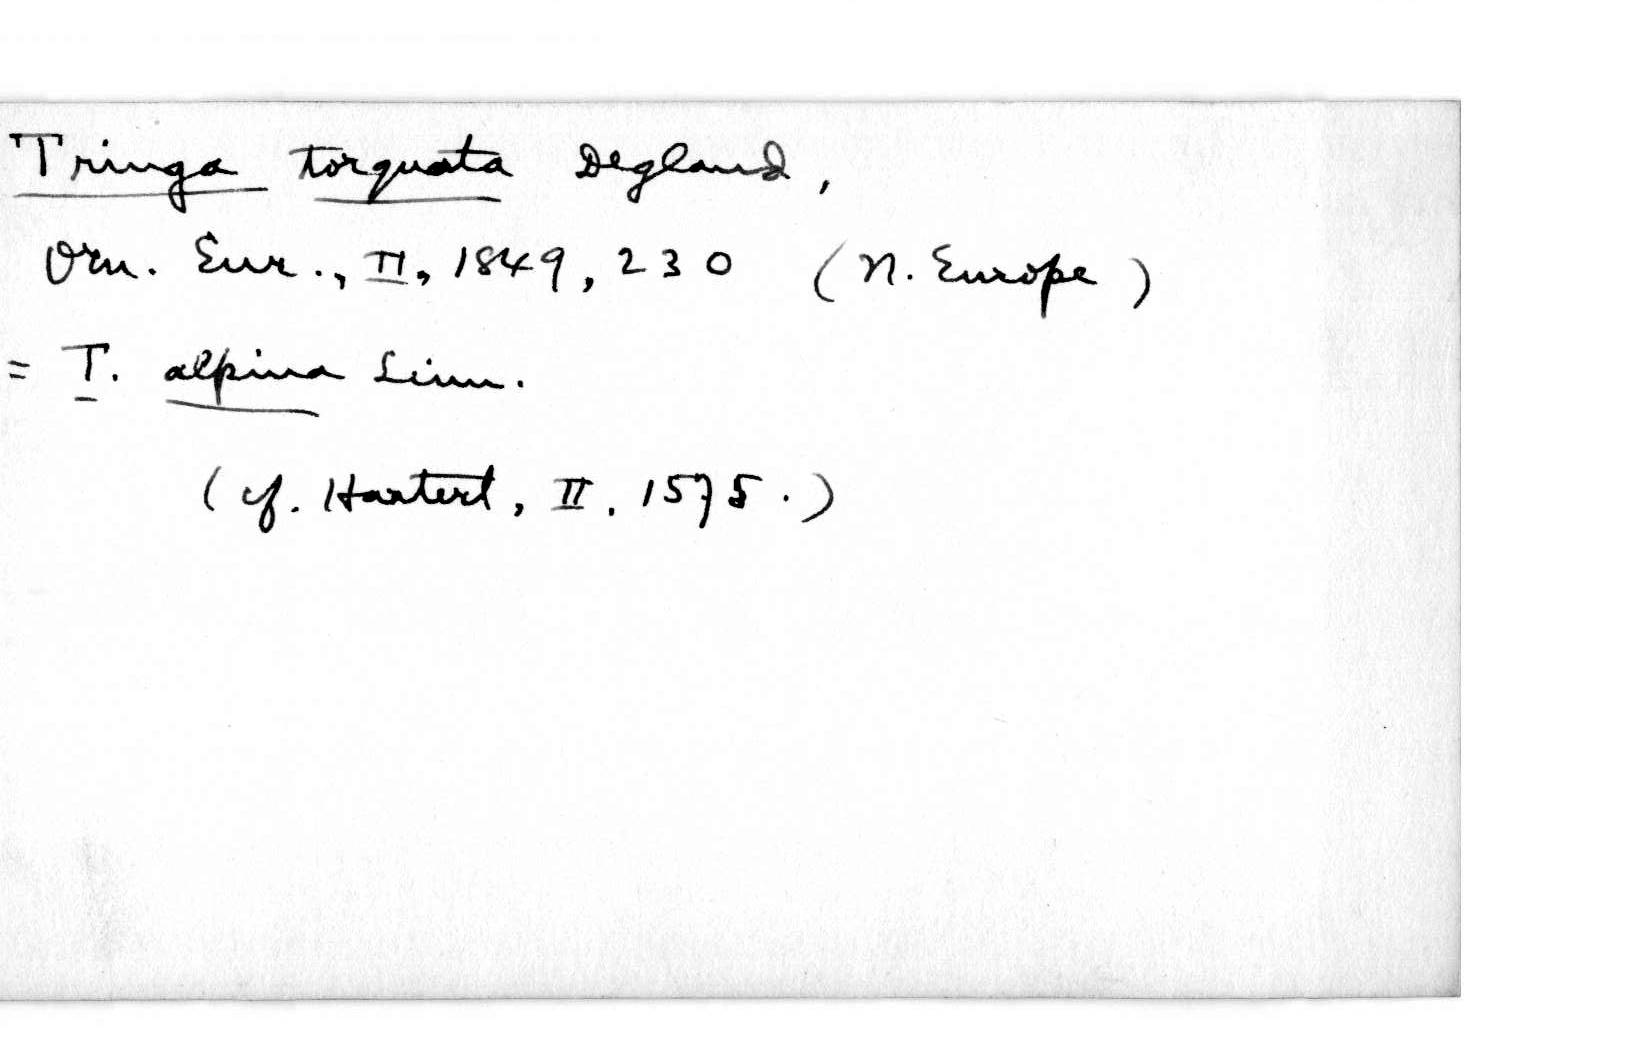 Tringa torquata Degland,
Orn. Eur., II, 1849, 230 (N. Europe)
= T. alpina Linn.
(cf. Hartert, II. 1575.)